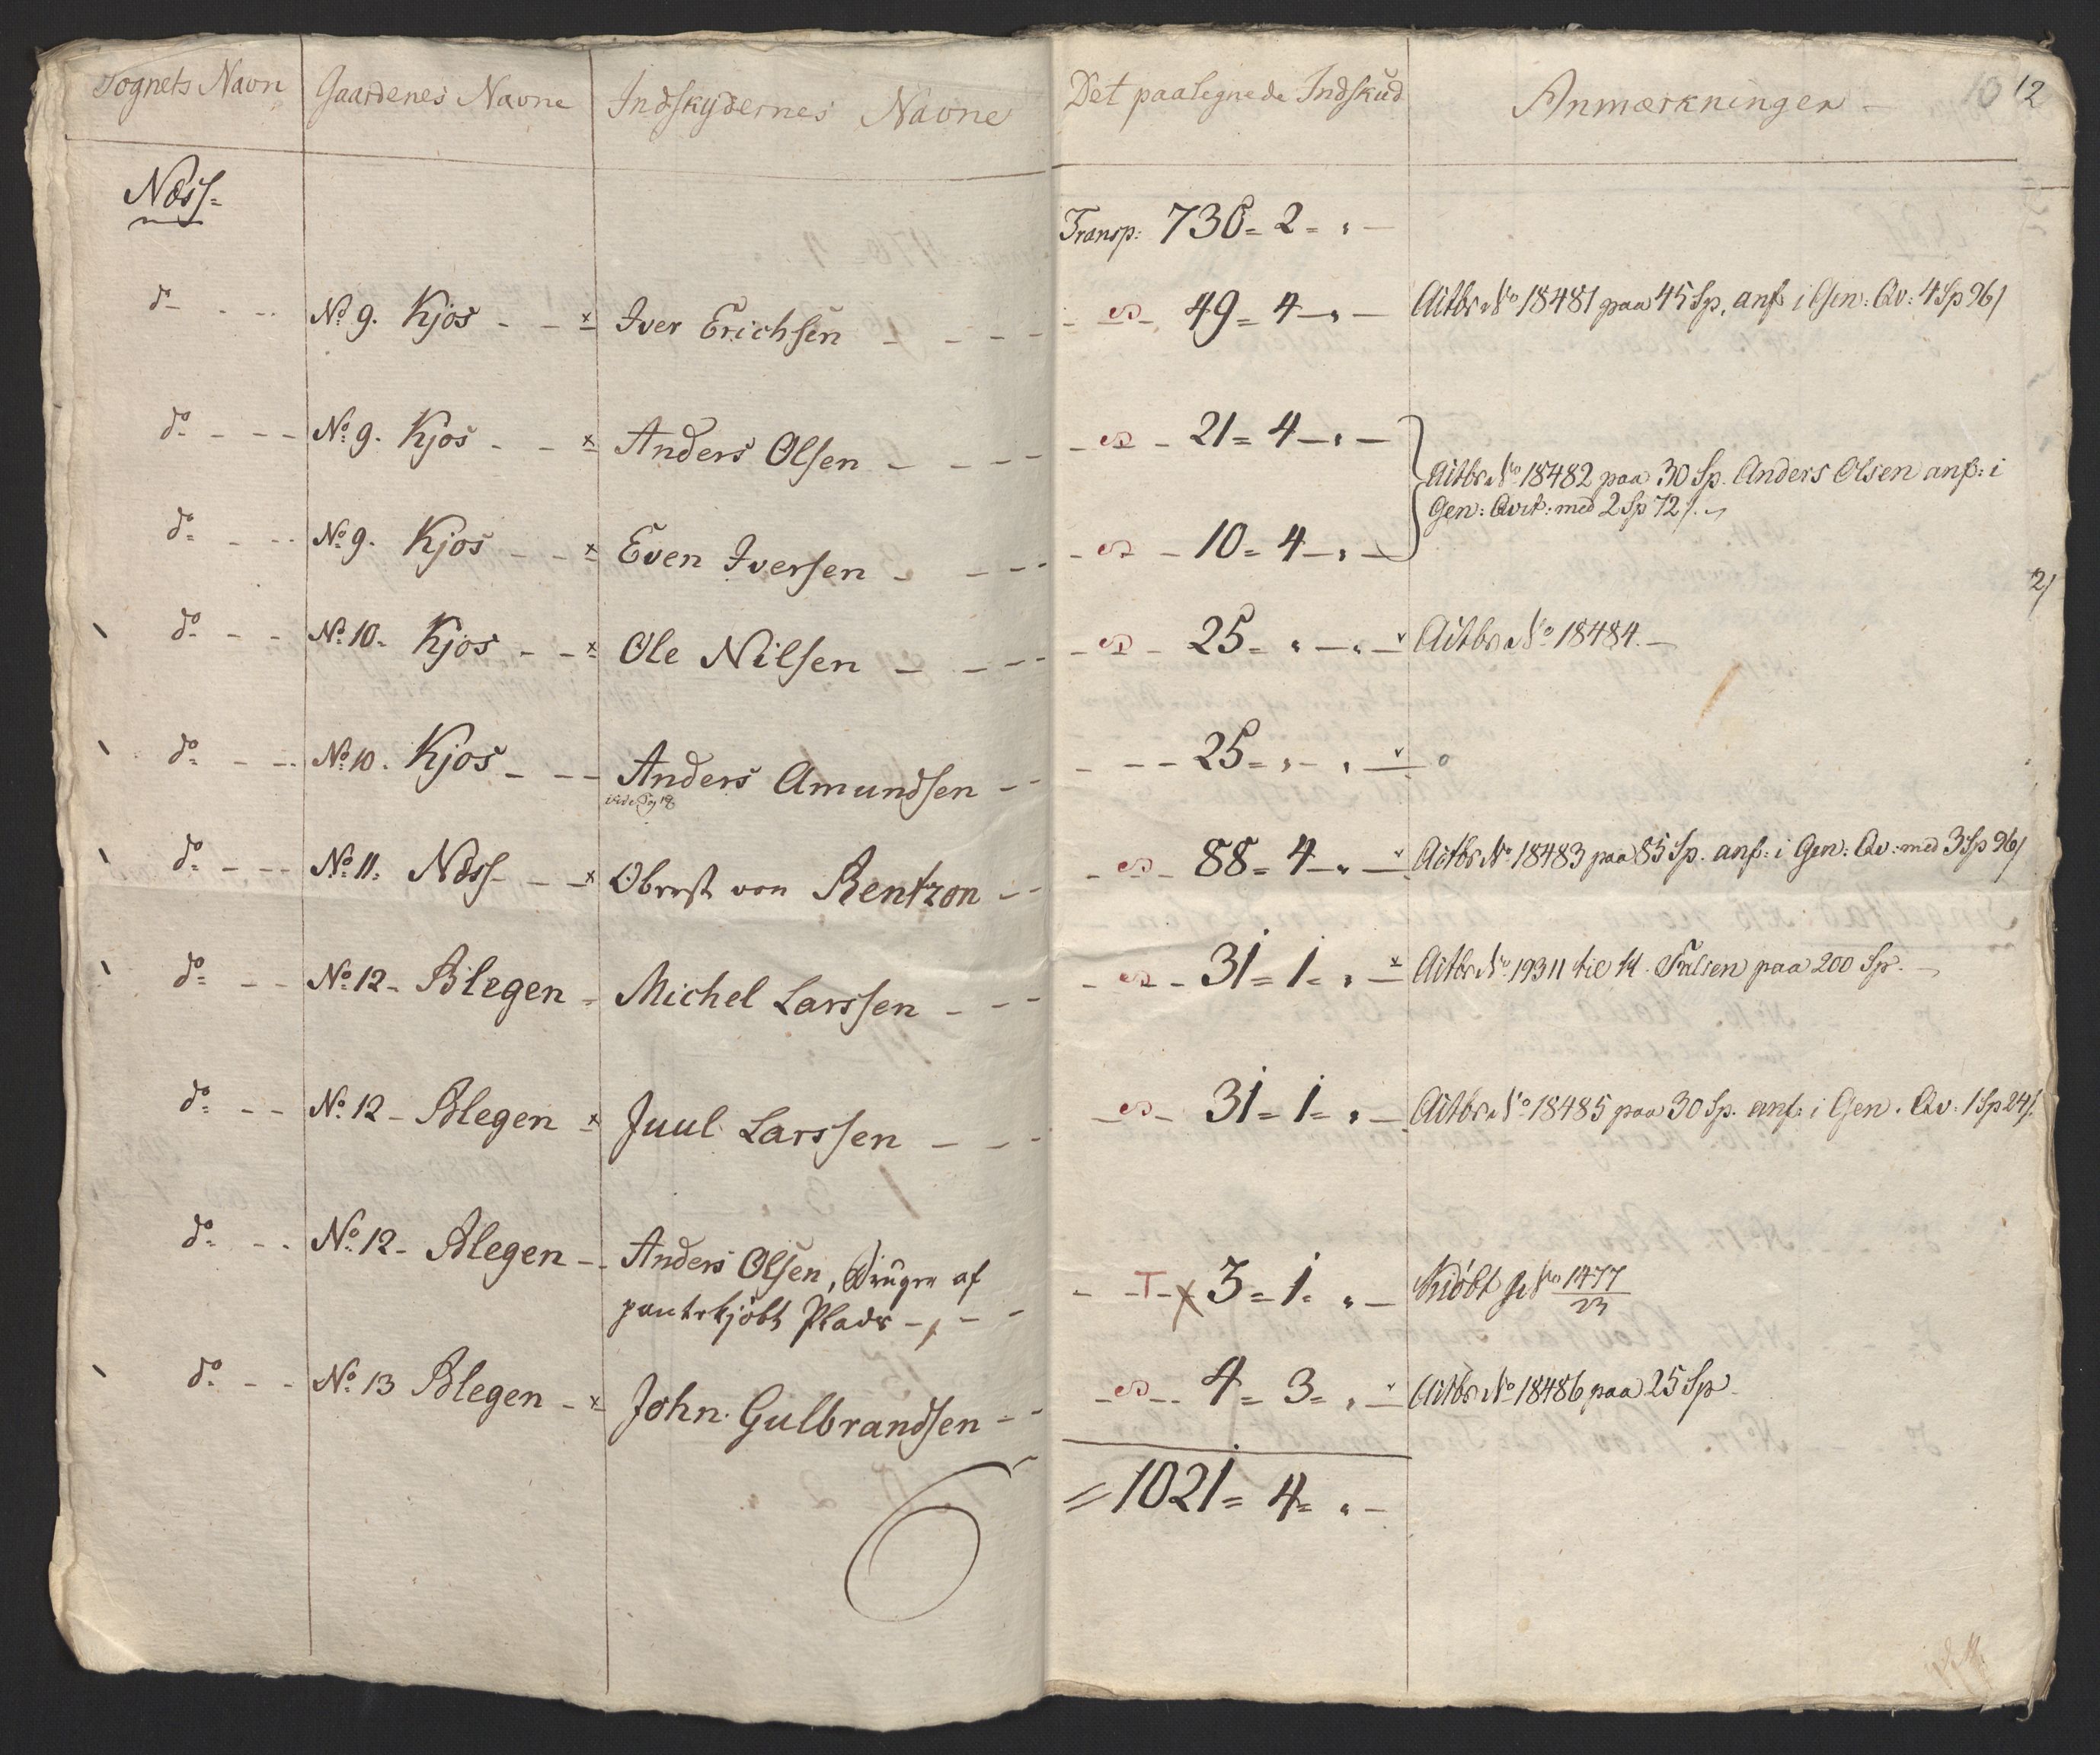 Sognets Navn Gaardenes Navne Indskydernes Navne Det paalignede Indskud Anmærkninger - 10 12
Næss=
Transp: 730= 2= " —
do - - - No 9. Kjos - - x Iver Erichsen - - - - 49= 4 — " — Actbr No 18481 paa 45 Sp. anf: i Gen: Qv: 4 Sp 96/
do - - - No 9. Kjos - - x Anders Olsen - - - - 21= 4 — " —
Actbr No 18482 paa 30 Sp. Anders Olsen anf: i
Gen: Qvit: med 2 Sp 72/.
do - - - No 9. Kjos - - x Even Iversen - - - - 10= 4 — " —
2/
do - - No 10. Kjos - - x Ole Nilsen - - - - 25= " — " — Actbr No 18484. —
do - - - No 10. Kjos - - - Anders Amundsen - - 25= " - " — o
vide Pag 18
do - - - No 11. Næss - - x Oberst von Bentzon - - 88= 4 — " — Actbr No 18483 paa 85 Sp. anf: i Gen: Qv: med 3 Sp 96/
do - - No 12 - Blegen = Michel Larssen - - - 31= 1= " — x Actbr No 19311 til 14. Falsen paa 200 Sp. —
do - - No 12 - Blegen x Juul Larssen - - - 31= 1= " — Actbr No 18485 paa 30 Sp. anf: i Gen. Qv: 1 Sp 24/.
do - - No 12 - Blegen - - Anders Olsen, Bruger af - - T - x 3= 1= " — Kiöbt No 1477/23
pantekjöbt Plads - , - -
do - - No 13 Blegen - x John Gulbrandsen - - 4= 3= " — Actbr No 18486 paa 25 Sp -
= 1021= 4= " —